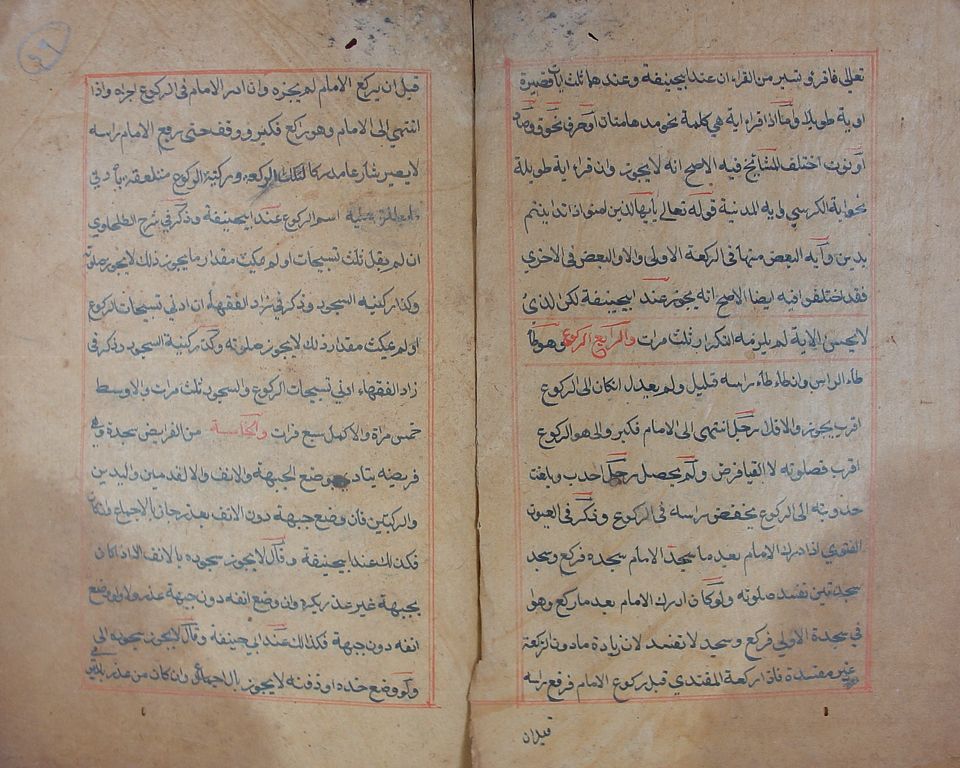 تعالى فاقرؤ تيسر من القراءان عند ابيحنيفة وعندهما ثلث بات قصيرة
اوية طويلة وأماّ اذ اقراء اية هي كلمة نحو مدهامتان أو حرف نحو ق وص
أو نون اختلف المشايخ فيه الاصح انه لا يجوز وان قراء اية طويلة
نحو اية الكرسي واية المدينة قوله تعالى يأيها الذين امنوا اذا تداينتم
بدين وأية البعض منها في الركعة الاولى والا والبعض في الاخرى
فقد اختلفوا فيه ايضا الاصح انه يجوز عند ابيحنيفة لكن لذى
لا يحسن الا الاية لم يلزمه التكرار ثلث مرات والرابع الركوع وهو طأ
طاء الراس وان طاء طاء راسه قليل ولم يعدل ان كان الى الركوع
اقرب يجوز والافلا رجل انتهى الى الامام فكبر والى هو الركوع
اقرب فصلوته لا القيا فرض ولم يحصل رجل احدب وبلغت
حدوبته الى الركوع يخفض براسه في الركوع وذكر في العيون
الفتوى اذا درك الامام بعد ما سجد الامام سجده فركع وسجد
سجدتين تفسد صلوته ولو كان ادرك الامام بعد ما ركع وهو
في سجدة الاولى فركع وسجد لا تفسد لان زيادة ما دون الركعة
غير مفسدة فاذا ركعة المقتدى قبل ركوع الامام فرفع راسه
قبل ان
قبل ان يركع الامام لم يجزه وان ادر الامام في الركوع اجزاه واذا
انتهى الى الامام وهو راكع فكبر ووقف حتى يرفع الامام راسه
لا يصير شارعا مدركا لتلك الركعة وركنية الركوع متعلقة بأدنى
ما يطلق عليه اسم الركوع عند ابيحنيفة وذكر في شرح الطحاوى
ان لم يقل ثلث تسبيحات او لم يمكث مقدار ما يجوز ذلك لا يجوز صلوته
وكذا ركنيه السجود وذكر في زاد الفقهاء ان ادنى تسبيحات الركوع
او لم يمكث مقدار ذلك لا يجوز صلوته وكذا ركنية السجود ذكر في
زاد الفقهاء ادنى تسبيحات الركوع والسجود ثلث مرات والاوسط
خمس مراة والاكمل سبع مرات والخامسة من الفرايض سجدة وفي
فريضه يتادى بوضع الجبهة والانف والا القدمين واليدين
والركبتين فان وضع جبهة دون الانف بعذر جاز بالاجماع وان كان
فكذلك عند ابيحنيفة وقال لا يجوز سجوده بالانف الا اذا كان
بجبهة غير عذر يكره وان وضع انفه دون جبهة عذر ولو وضع
انفه دون جبهة فكذلك عند ابى حنيفة وقال لا يجوز سجوده الى
ولو وضع خده او ذقنه لا يجوز بالاجماع وان كان من عذر